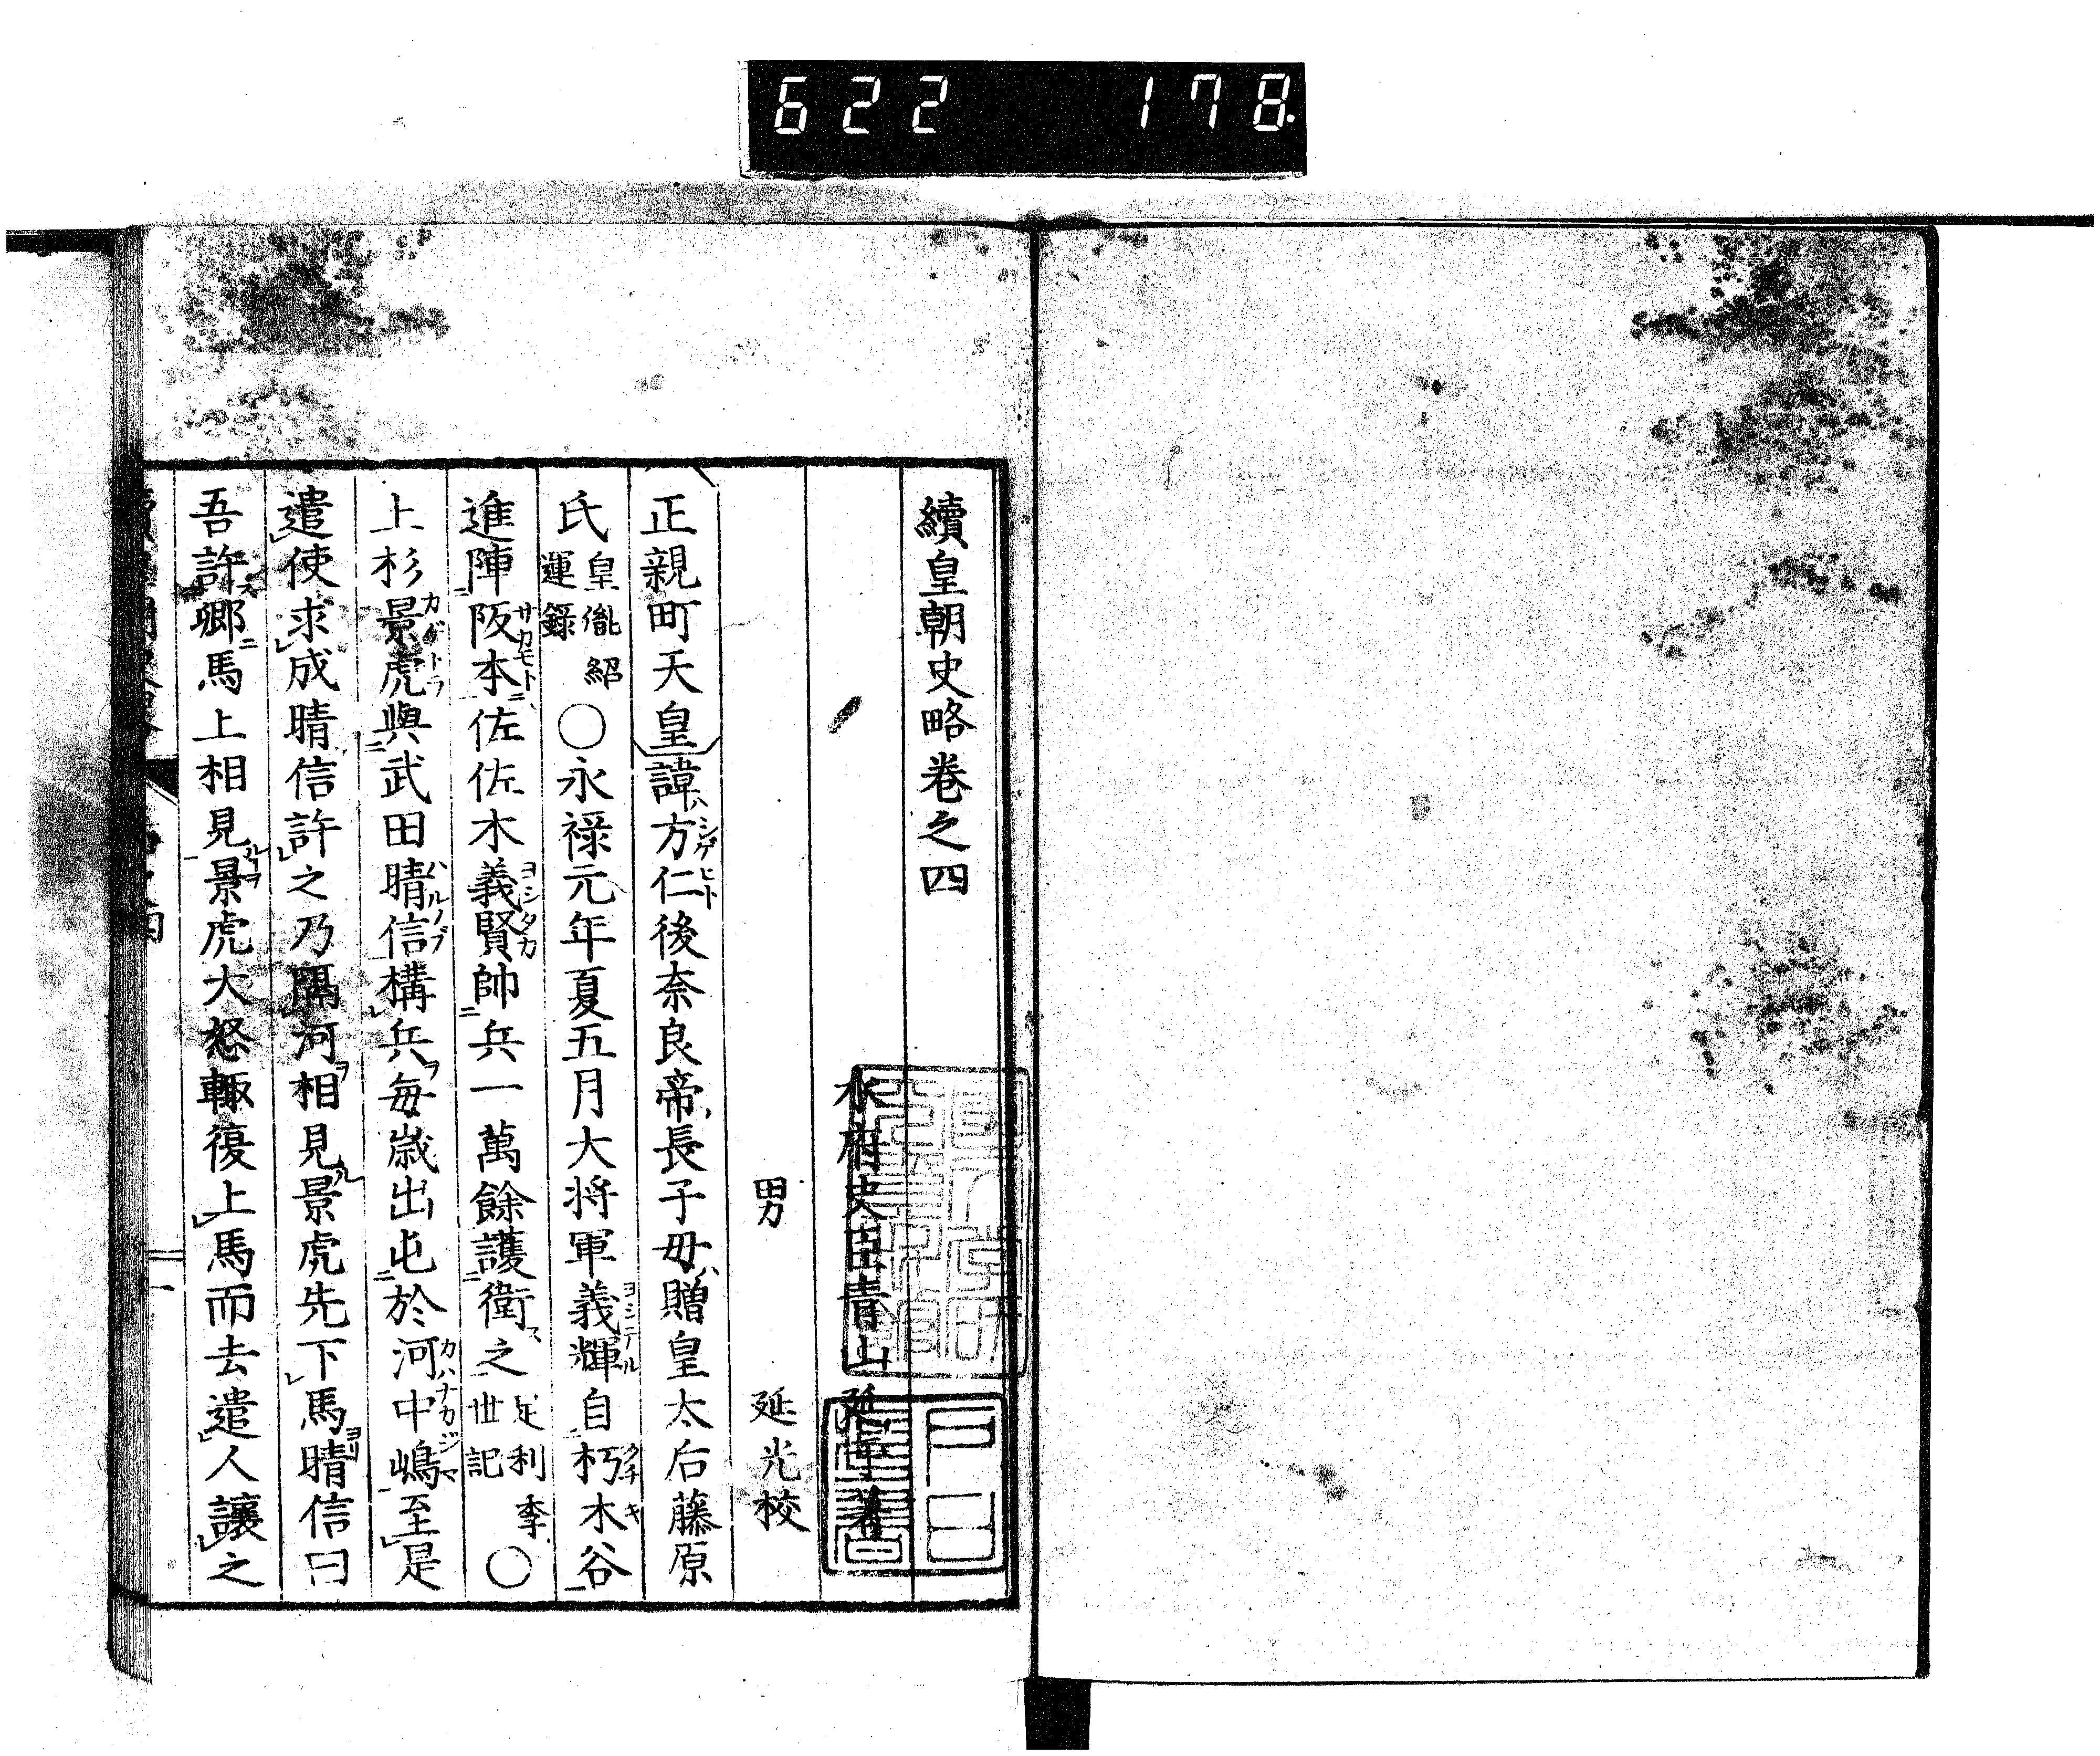 622 178.
續皇朝史略卷之四
水府史臣青山延于著
男 延光校
正親町天皇諱方仁後奈良帝長子母贈皇太后藤原
氏皇胤紹運錄○永祿元年夏五月大将軍義輝自朽木谷
進陣阪本佐佐木義賢帥兵一萬餘護衛之足利季世記○
上杉景虎與武田晴信構兵每歲出屯於河中嶋至是
遣使求成晴信許之乃隔河相見景虎先下馬晴信曰
吾許鄉馬上相見景虎大怒輙復上馬而去遣人讓之